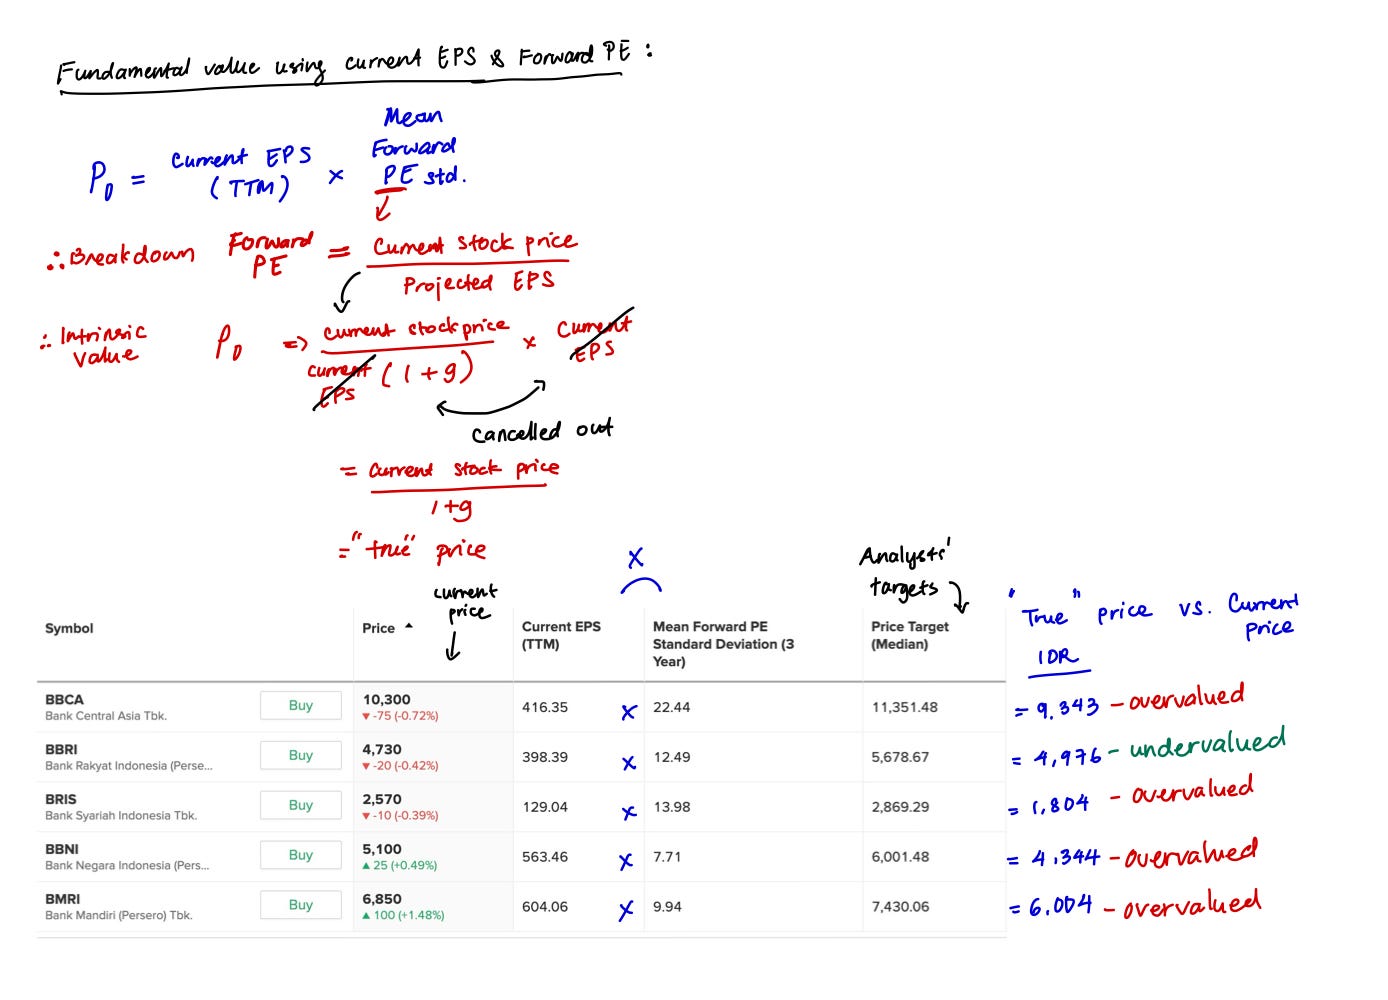 Fundamental value using current EPS & Forward PE :
Mean
Forward
PE std.
P0 = Current EPS (TTM) ×
∴ Breakdown Forward PE = Current stock price
Projected EPS
∴ Intrinsic value P0 => current stock price × Current EPS
current EPS (1+g)
Cancelled out
= Current stock price
1+g
= "true" price
×
current price
Analysts' targets
"True" price vs. Current Price
IDR
Symbol Price Current EPS (TTM) Mean Forward PE Standard Deviation (3 Year) Price Target (Median)
BBCA Buy 10,300 416.35 × 22.44 11,351.48 = 9.343 - overvalued
Bank Central Asia Tbk. ▼ -75 (-0.72%)
BBRI Buy 4,730 398.39 × 12.49 5,678.67 = 4,976 - undervalued
Bank Rakyat Indonesia (Perse... ▼ -20 (-0.42%)
BRIS Buy 2,570 129.04 × 13.98 2,869.29 = 1,804 - overvalued
Bank Syariah Indonesia Tbk. ▼ -10 (-0.39%)
BBNI Buy 5,100 563.46 × 7.71 6,001.48 = 4.344 - overvalued
Bank Negara Indonesia (Pers... ▲ 25 (+0.49%)
BMRI Buy 6,850 604.06 × 9.94 7,430.06 = 6.004 - overvalued
Bank Mandiri (Persero) Tbk. ▲ 100 (+1.48%)